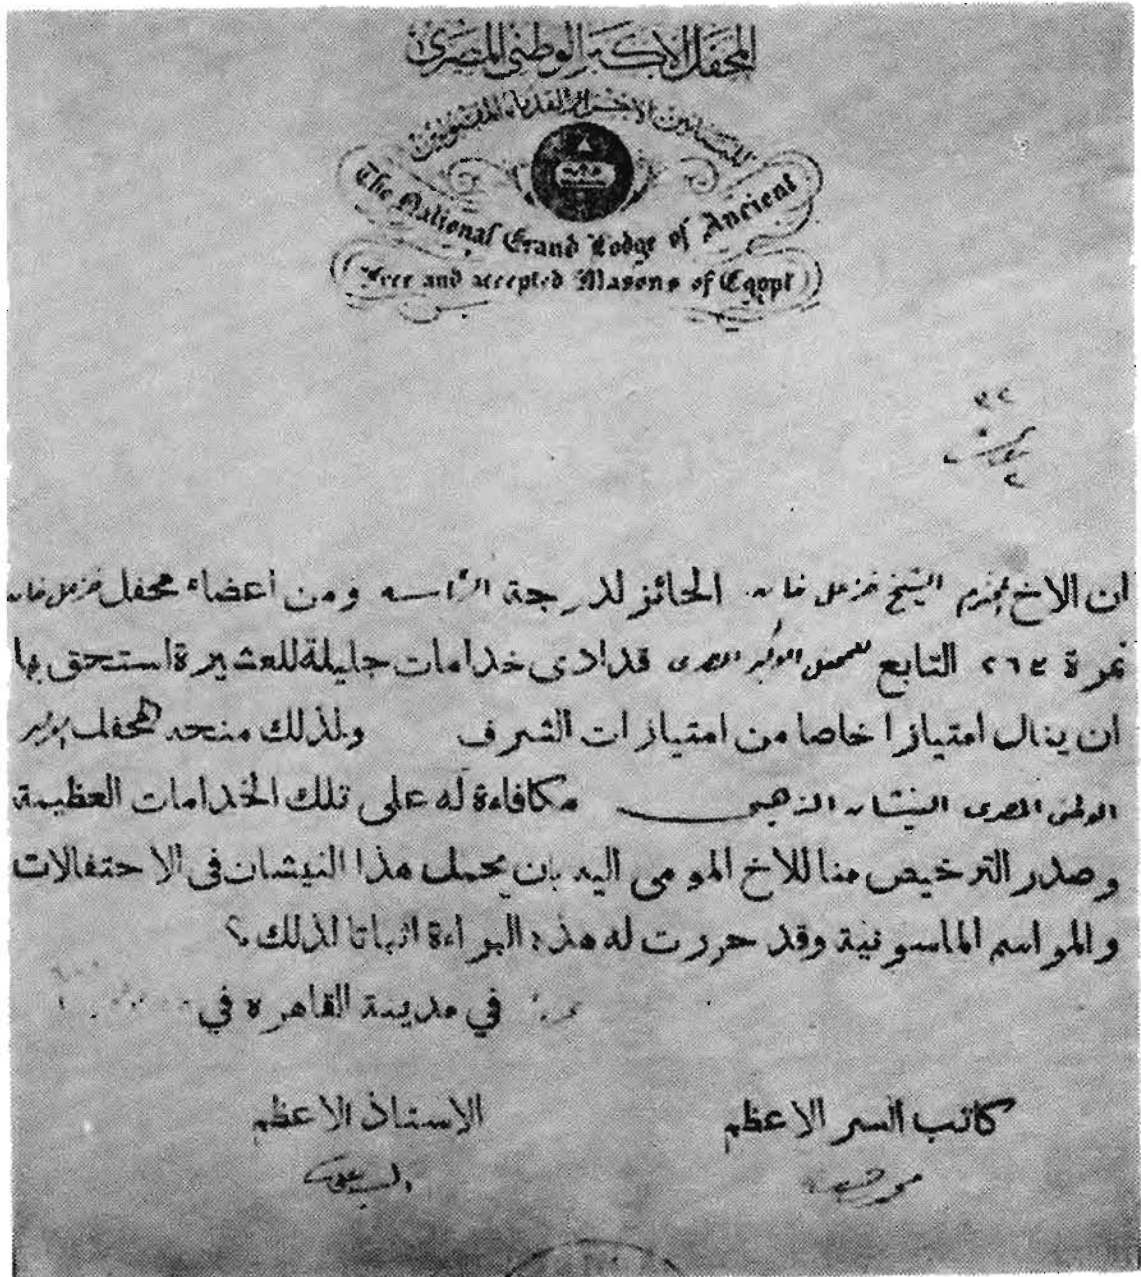 المحفل الاكبر الوطنى المصرى
للبنائين الاحرار القدماء المقبولين
The National Grand Lodge of Ancient
Free and accepted Masons of Egypt
ان الاخ المحترم الشيخ خزعل خان الحائز لدرجة الرآسه ومن أعضاء محفل خزعل خان
نمرة ٢٦٤ التابع للمحفل الاكبر المصرى قد ادى خدامات جليلة للعشيرة استحق بها
ان ينال امتيازا خاصا من امتيازات الشرف ولذلك منحه المحفل الاكبر
الوطنى المصرى النيشان الذهبى مكافاءة له على تلك الخدامات العظيمة
وصدر الترخيص منا للاخ المومى اليه بان يحمل هذا النيشان فى الاحتفالات
والمواسم الماسونية وقد حررت له هذه البراءة اثباتا لذلك
في مدينة القاهرة في
كاتب السر الاعظم الاستاذ الاعظم